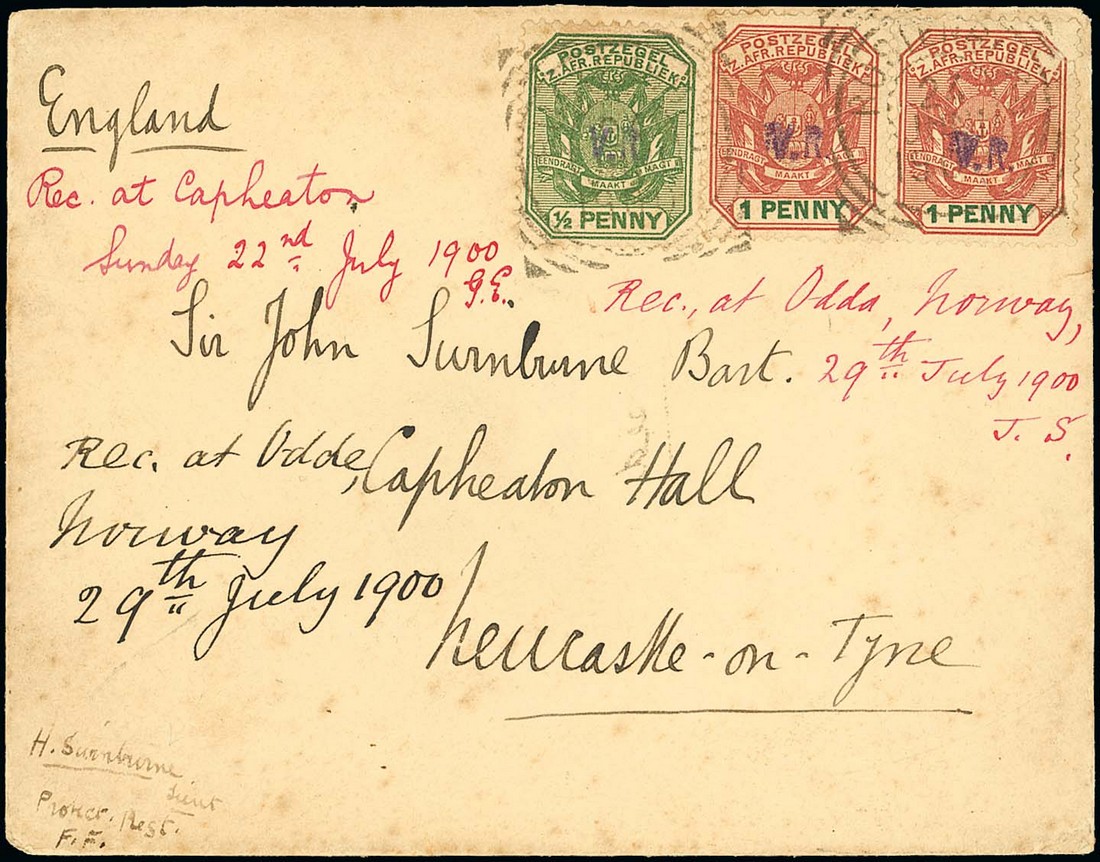 POSTZEGEL
Z. AFR. REPUBLIEK
V.R
EENDRAGT MAAKT MAGT
½ PENNY
POSTZEGEL
Z. AFR. REPUBLIEK
V.R
EENDRAGT MAAKT MAGT
1 PENNY
POSTZEGEL
Z. AFR. REPUBLIEK
V.R
EENDRAGT MAAKT MAGT
1 PENNY
England
Rec. at Capheaton
Sunday 22nd July 1900
G.E.
Rec., at Odda, Norway,
29th July 1900
J. S.
Sir John Swinburne Bart.
Capheaton Hall
Newcastle-on-Tyne
Rec. at Odde,
Norway
29th July 1900
H. Swinburne
Lieut
Protect. Regt.
F.F.